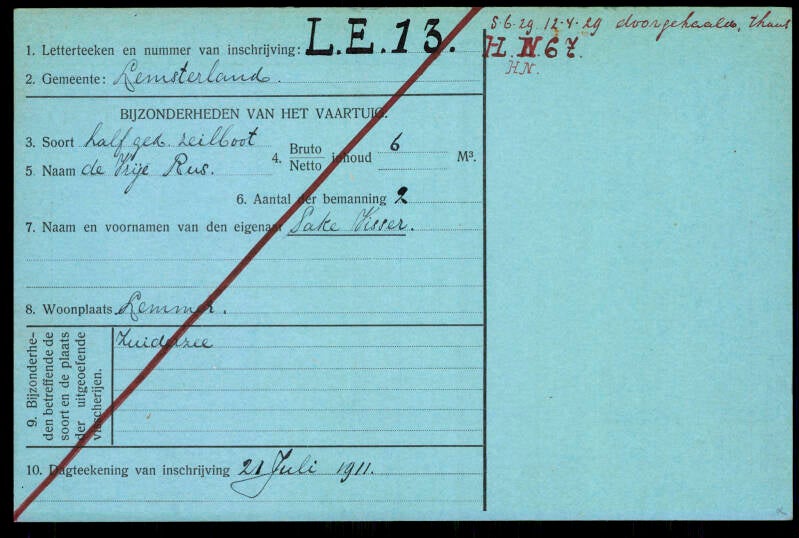 1. Letterteeken en nummer van inschrijving: L.E.13.
2. Gemeente: Lemsterland.
BIJZONDERHEDEN VAN HET VAARTUIG.
3. Soort half ged. zeilboot
4. Bruto Netto inhoud 6 M³.
5. Naam de Vrije Rus.
6. Aantal der bemanning 2
7. Naam en voornamen van den eigenaar Sake Visser.
8. Woonplaats Lemmer.
9. Bijzonderhe-
den betreffende de
soort en de plaats
der uitgeoefende
visscherijen.
Zuiderzee
10. Dagteekening van inschrijving 21 Juli 1911.
S.6-29. 12-4-29 doorgehaald, thans
H N 67.
HN.